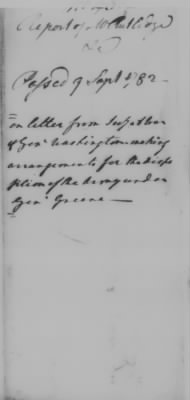 Report of Mr Rutledge
Passed 9 Sept. 1782
on letter from Supt War
& Genl Washington making
arrangements for the dispo
sition of the Army under
Genl Greene